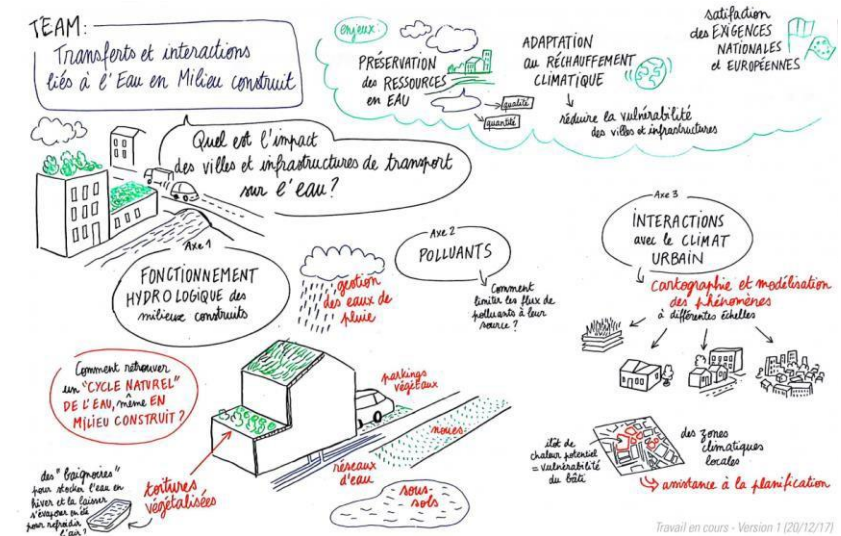 TEAM:
Transferts et interactions
liés à l'Eau en Milieu construit
enjeux:
PRÉSERVATION
des RESSOURCES
en EAU
qualité
quantité
ADAPTATION
au RÉCHAUFFEMENT
CLIMATIQUE
réduire la vulnérabilité
des villes et infrastructures
satisfaction
des EXIGENCES
NATIONALES
et EUROPÉENNES
Quel est l'impact
des villes et infrastructures de transport
sur l'eau?
Axe 1
FONCTIONNEMENT
HYDROLOGIQUE des
milieux construits
gestion
des eaux de
pluie
Axe 2
POLLUANTS
Comment
limiter les flux de
polluants à leur
source ?
Axe 3
INTERACTIONS
avec le CLIMAT
URBAIN
cartographie et modélisation
des phénomènes
à différentes échelles
Comment retrouver
un "CYCLE NATUREL"
DE L'EAU, même EN
MILIEU CONSTRUIT ?
parkings
végétaux
noues
réseaux
d'eau
sous-
sols
toitures
végétalisées
des "baignoires"
pour stocker l'eau en
hiver et la laisser
s'évaporer en été
pour refroidir
l'air ?
îlot de
chaleur potentiel
= vulnérabilité
du bâti
des zones
climatiques
locales
assistance à la planification
Travail en cours - Version 1 (20/12/17)